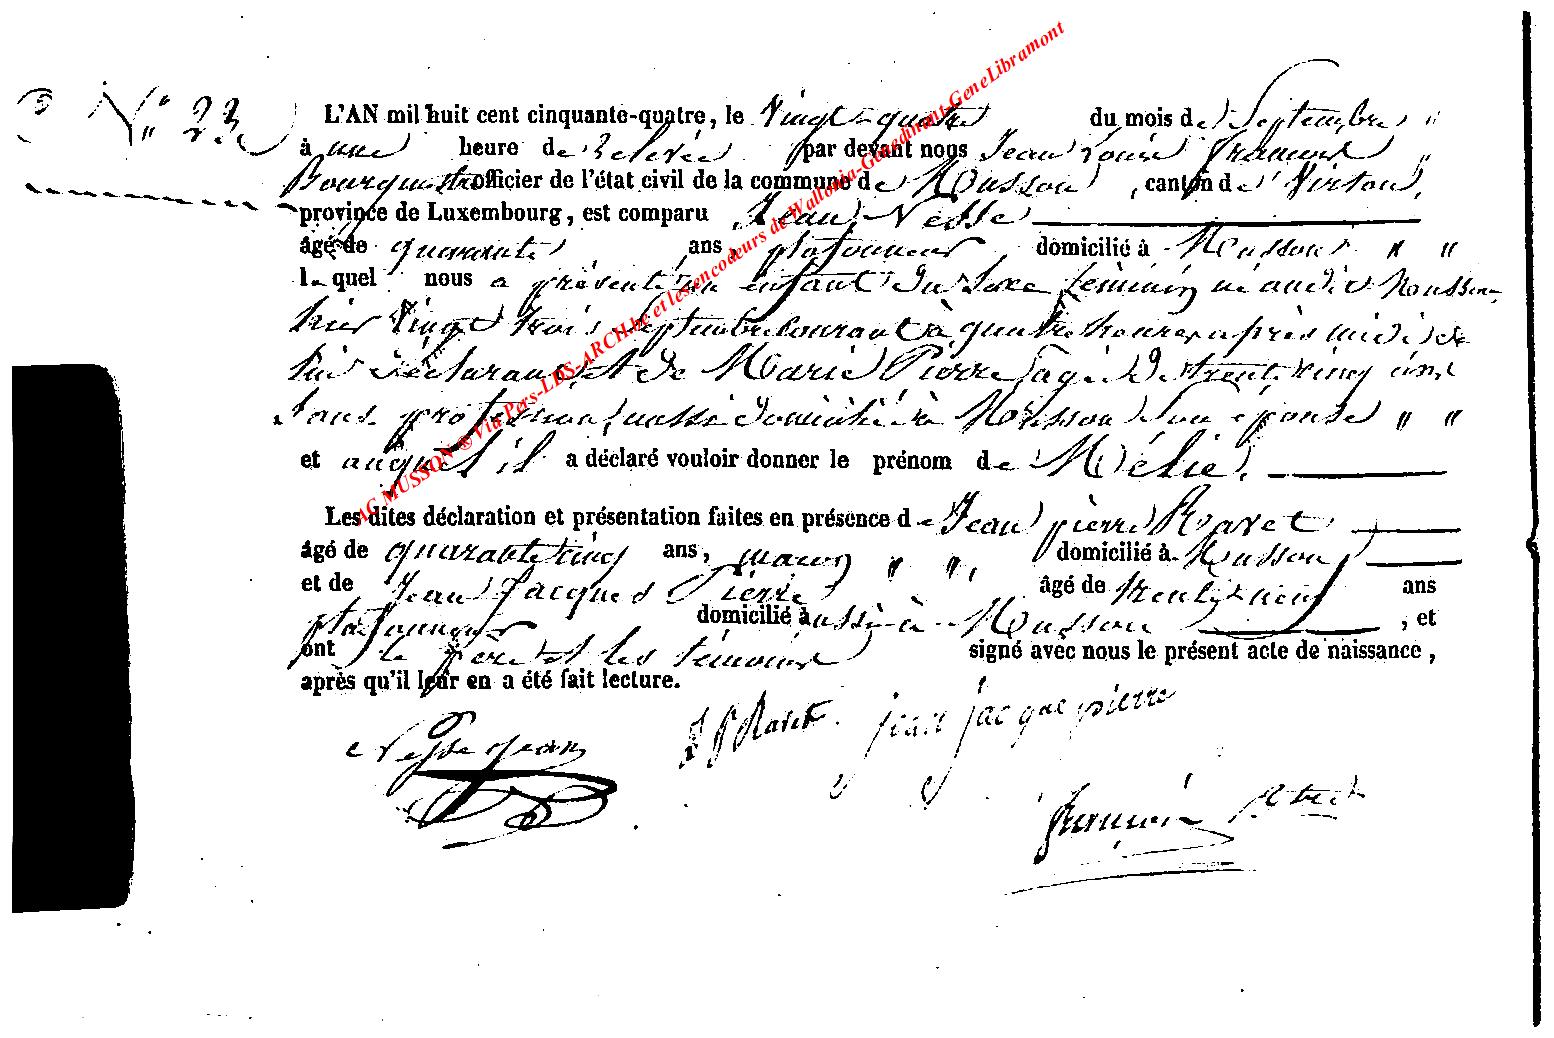 N° 23
L'AN mil huit cent cinquante-quatre, le vingt-quatre du mois de Septembre "
à une heure de relevée par devant nous Jean Louis François "
officier de l'état civil de la commune de Musson, canton de Virton,
province de Luxembourg, est comparu Jean Nesse
âgé de quarante ans, plafonneur domicilié à Musson " "
lequel nous a présenté un enfant du sexe féminin, né audit Musson
hier vingt trois Septembre courant à quatre heures après midi de
lui déclarant et de Marie Pierre, agée de trente cinq ans
sans profession, aussi domiciliée à Musson son épouse " "
et auquel il a déclaré vouloir donner le prénom de Mélie.
Les dites déclaration et présentation faites en présence de Jean pierre Ravet
âgé de quarante cinq ans, maçon " ", domicilié à Musson
et de Jean Jacques Pierre âgé de trente neuf ans
plafonneur domicilié aussi à Musson, et
ont le père et les témoins signé avec nous le présent acte de naissance,
après qu'il leur en a été fait lecture.
Nesse Jean J P Ravet jean jacque pierre
François
AG MUSSON ® Via Pers-LDS-ARCH.be et les encodeurs de Wallonia-Genedinant-GeneLibramont